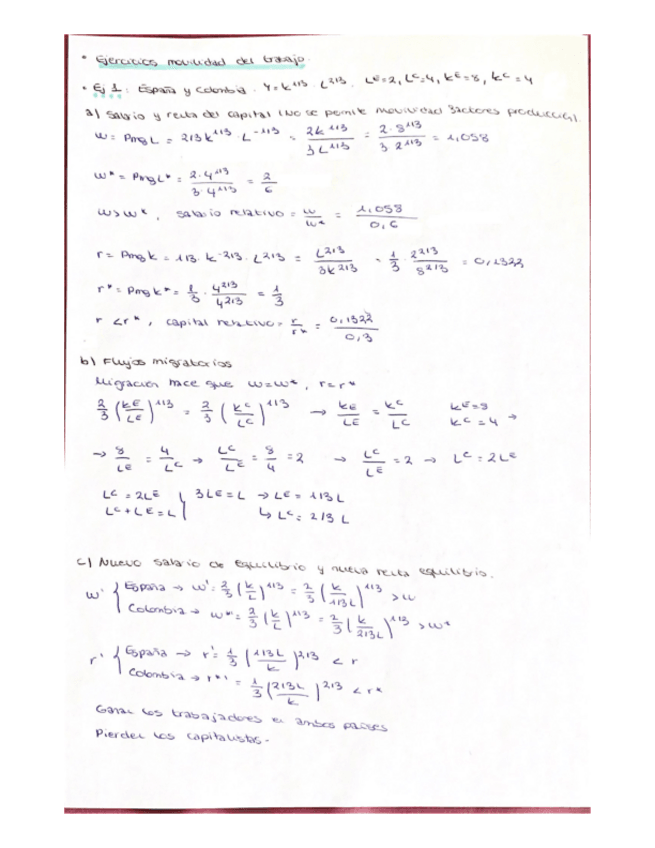 • Ejercicios movilidad del trabajo.
• Ej 1: España y Colombia. Y = K^1/3 · L^2/3, L^E=2, L^C=4, K^E=8, K^C=4
a) Salario y renta del capital (No se permite movilidad factores producción).
w = PmgL = 2/3 K^1/3 · L^-1/3 = 2K^1/3 / 3L^1/3 = 2·8^1/3 / 3·2^1/3 = 1,058
w* = PmgL* = 2·4^1/3 / 3·4^1/3 = 2/6
w>w*, salario relativo = w/w* = 1,058 / 0,6
r = Pmg K = 1/3 · K^-2/3 · L^2/3 = L^2/3 / 3K^2/3 = 1/3 · 2^2/3 / 8^2/3 = 0,1322
r* = Pmg K* = 1/3 · 4^2/3 / 4^2/3 = 1/3
r < r*, capital relativo = r/r* = 0,1322 / 0,3
b) Flujos migratorios
Migración hace que w=w*, r=r*
2/3 (K^E/L^E)^1/3 = 2/3 (K^C/L^C)^1/3 → K^E/L^E = K^C/L^C K^E=8 K^C=4 →
→ 8/L^E = 4/L^C → L^C/L^E = 8/4 = 2 → L^C/L^E = 2 → L^C = 2L^E
L^C = 2L^E } 3L^E = L → L^E = 1/3 L
L^C + L^E = L } ↳ L^C = 2/3 L
c) Nuevo salario de equilibrio y nueva renta equilibrio.
w' { España → w' = 2/3 (K/L)^1/3 = 2/3 (K / 1/3L)^1/3 > w
Colombia → w*' = 2/3 (K/L)^1/3 = 2/3 (K / 2/3L)^1/3 > w*
r' { España → r' = 1/3 (1/3L / K)^2/3 < r
Colombia → r*' = 1/3 (2/3L / K)^2/3 < r*
Ganan los trabajadores en ambos países
Pierden los capitalistas.